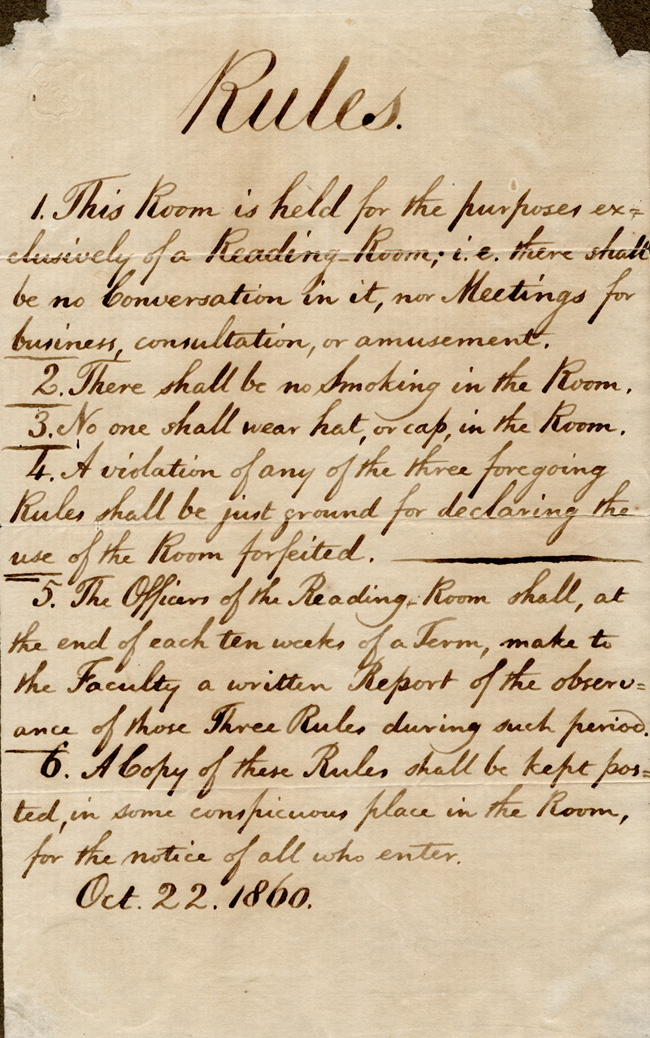 Rules.
1. This Room is held for the purposes ex=
clusively of a Reading-Room; i.e. there shall
be no Conversation in it, nor Meetings for
business, consultation, or amusement.
2. There shall be no Smoking in the Room.
3. No one shall wear hat, or cap, in the Room.
4. A violation of any of the three foregoing
Rules shall be just ground for declaring the
use of the Room forfeited.
5. The Officers of the Reading-Room shall, at
the end of each ten weeks of a Term, make to
the Faculty a written Report of the observ=
ance of those Three Rules during such period.
6. A Copy of these Rules shall be kept pos=
ted, in some conspicuous place in the Room,
for the notice of all who enter.
Oct. 22. 1860.